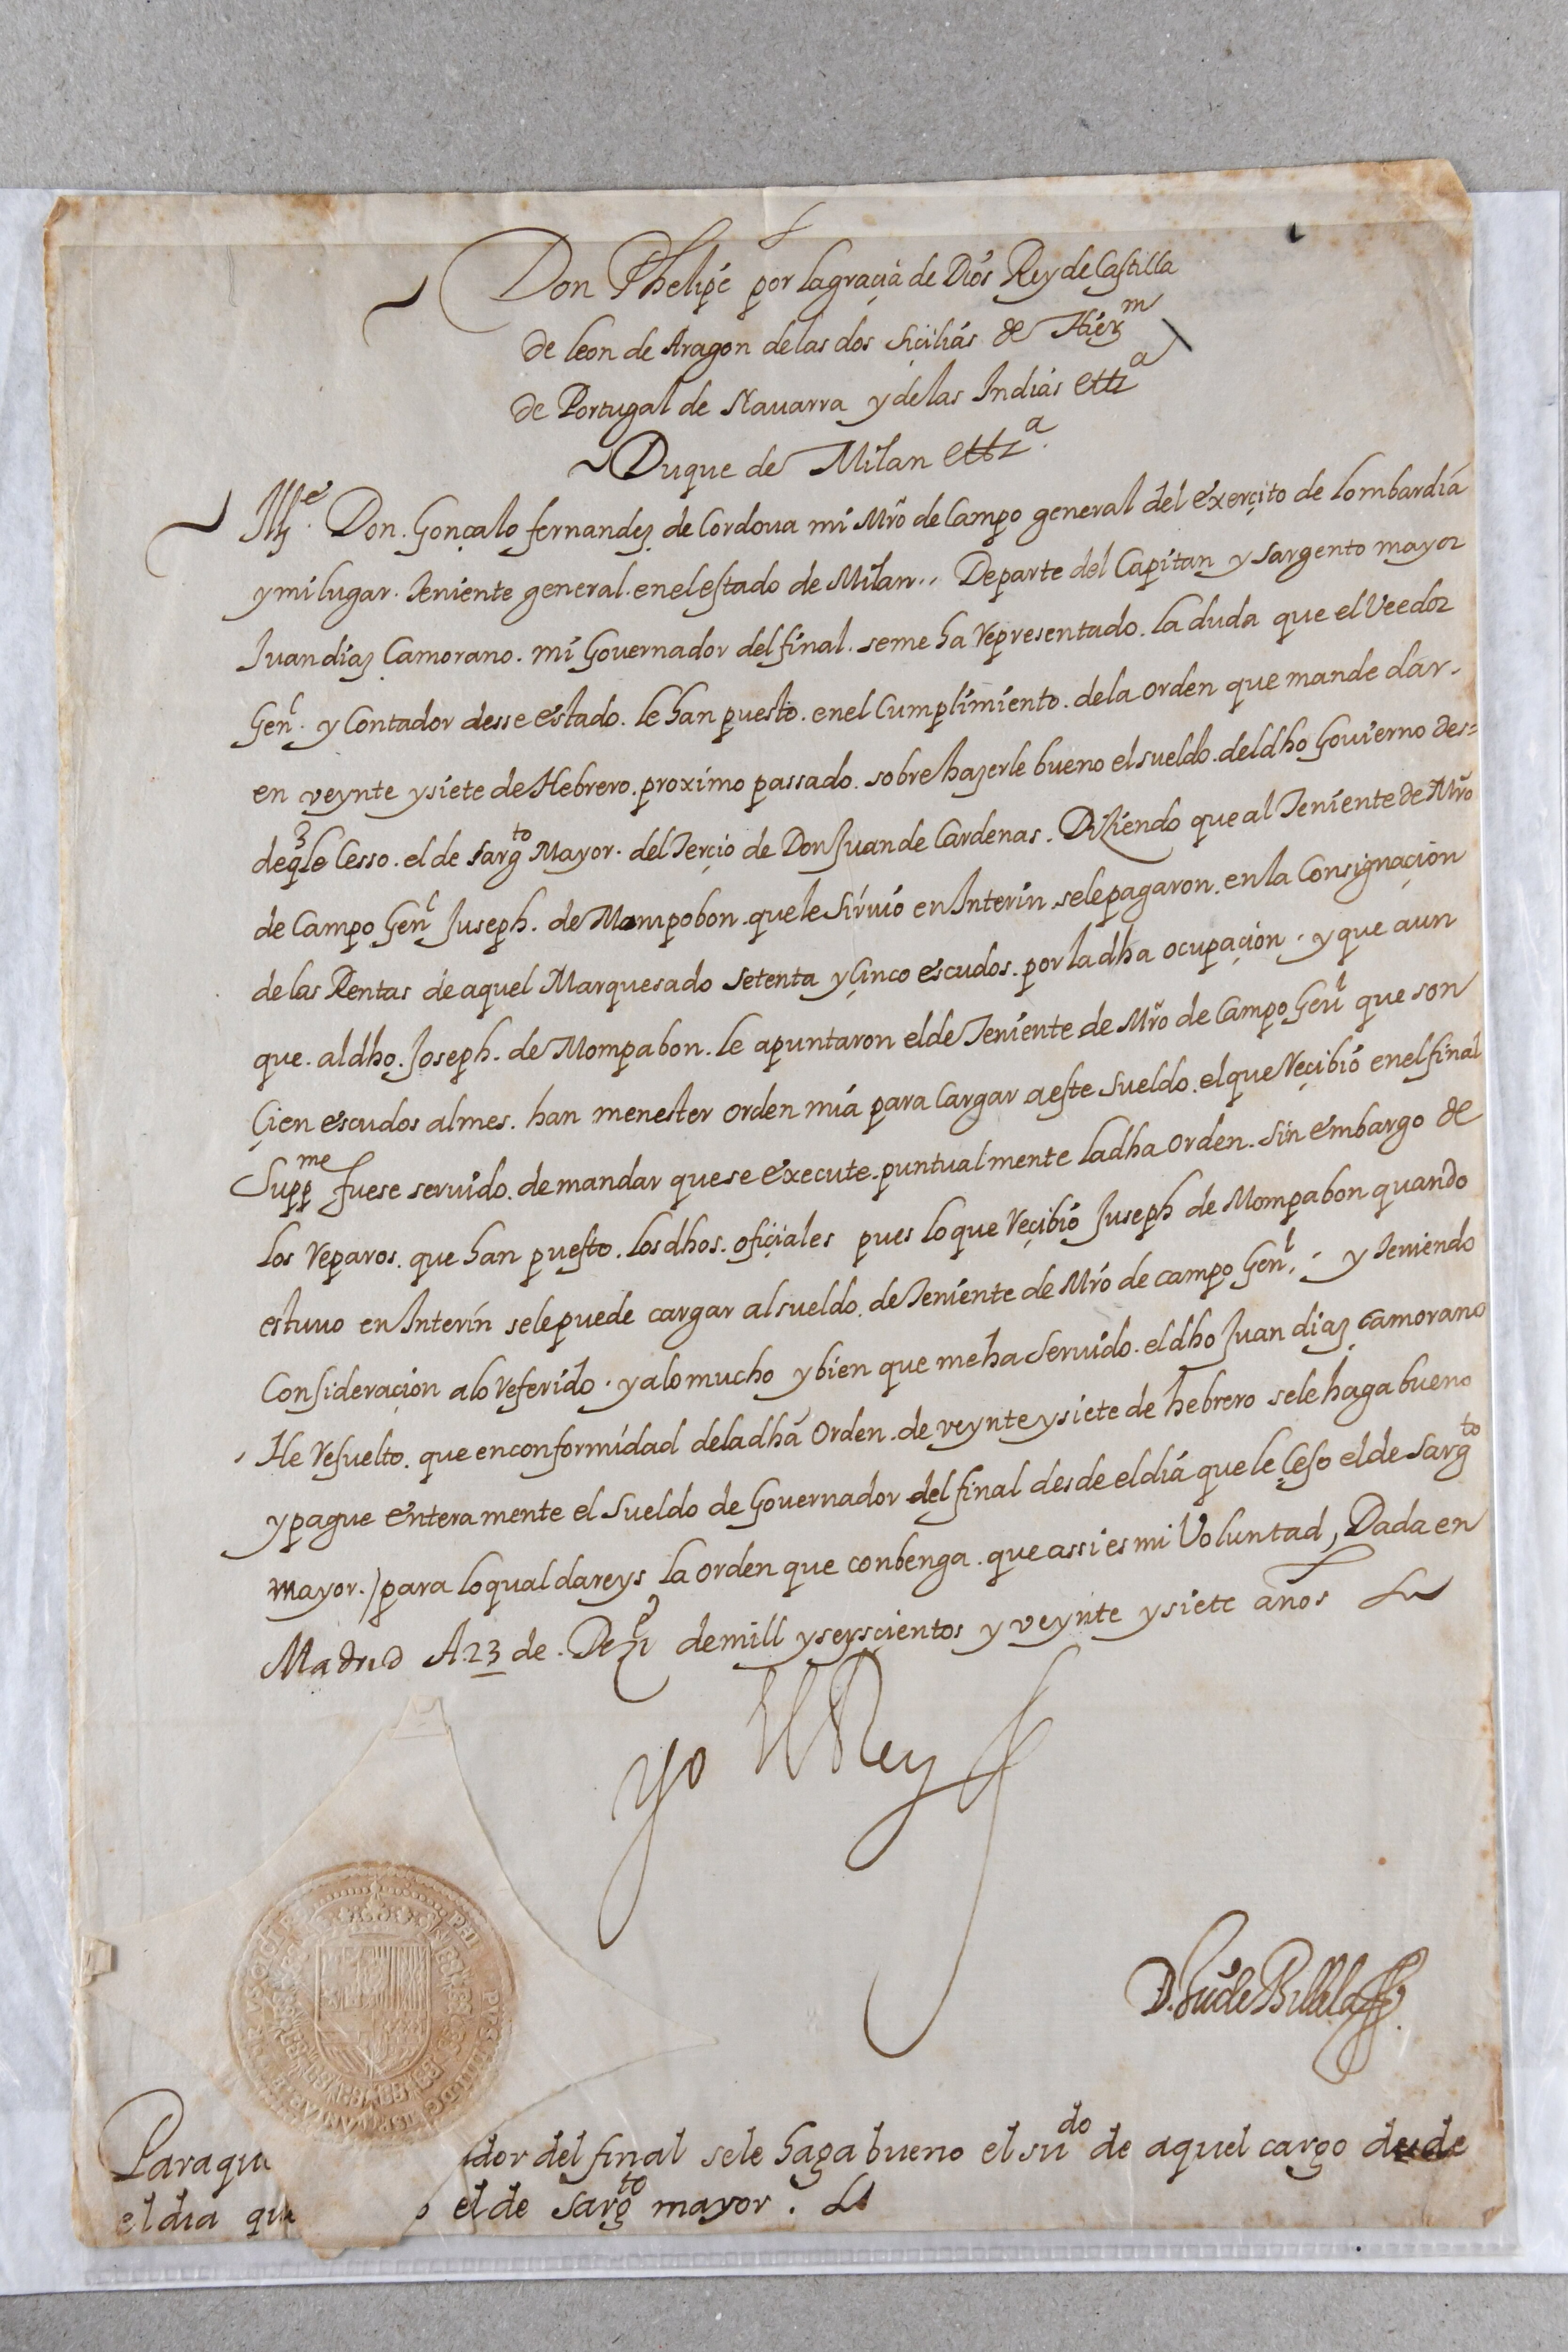 Don Phelipe por la graçia de Dios Rey de Castilla
de leon de Aragon de las dos siçilias de Hierm
de Portugal de Nauarra y de las Indias ettza
Duque de Milan ettza.
Ille. Don. Gonçalo fernandez de Cordoua mi Mro de Campo general del exerçito de lombardia
y mi lugar. teniente general. en el estado de Milan.. De parte del Capitan y sargento mayor
Juan diaz Çamorano. mi Gouernador del final. se me ha representado. la duda que el Veedor
Genl. y Contador desse estado. le han puesto. en el Cumplimiento. de la orden que mande dar.
en veynte y siete de Hebrero. proximo passado. sobre hazerle bueno el sueldo. del dho Gouierno des=
de q le Cesso. el de sargto Mayor. del terçio de Don Juan de Cardenas. Diziendo que al Teniente de Mro
de Campo Genl Juseph. de Mompobon. que le siruio en Interin. se le pagaron. en la Consignaçion
de las Rentas de aquel Marquesado setenta y Çinco escudos. por la dha ocupaçion. y que aun
que. al dho. Joseph. de Mompabon. le apuntaron el de Teniente de Mro de Campo Genl que son
Çien escudos al mes. han menester orden mia para cargar a este sueldo. el que reçibio en el final
Suppme fuese seruido. de mandar que se execute. puntualmente la dha orden. sin embargo de
los reparos. que han puesto. los dhos. ofiçiales pues lo que reçibio Juseph de Mompabon quando
estuuo en Interin se le puede cargar al sueldo. de Teniente de Mro de campo Genl. y teniendo
Consideraçion a lo referido. y a lo mucho y bien que me ha seruido. el dho Juan diaz Çamorano
He resuelto. que en conformidad de la dha Orden. de veynte y siete de hebrero se le haga bueno
y pague enteramente el sueldo de Gouernador del final desde el dia que le Çeso el de Sargto
mayor./ para lo qual dareys la orden que conbenga. que assi es mi Voluntad, Dada en
Madrid A 23 de. Dezi de mill y seysçientos y veynte y siete años
yo el Rey
Para que dor del final se le haga bueno el sudo de aquel cargo desde
el dia que o el de sargto mayor.